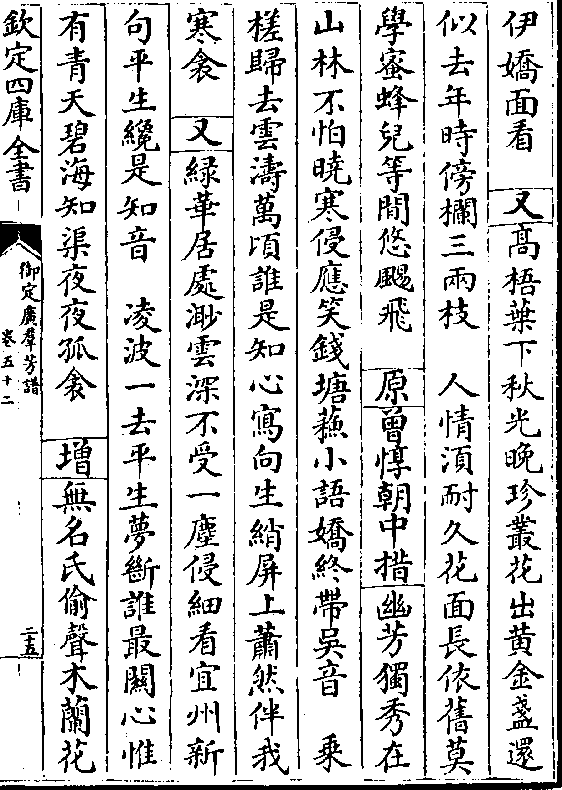 伊嬌面看　又高梧葉下秋光晚珍叢花出黄金盞還
似去年時傍欄三兩枝　人情須耐久花面長依舊莫
學蜜蜂兒等閒悠颺飛　原曾惇朝中措幽芳獨秀在
山林不怕曉寒侵應笑錢塘蘇小語嬌終帶吳音　乘
槎歸去雲濤萬頃誰是知心寫向生綃屏上蕭然伴我
寒衾　又緑華居處渺雲深不受一塵侵細看宜州新
句平生纔是知音　凌波一去平生夢斷誰最關心惟
有青天碧海知渠夜夜孤衾　増無名氏偷聲木蘭花
欽定四庫全書
御定廣羣芳譜
卷五十二
二十五